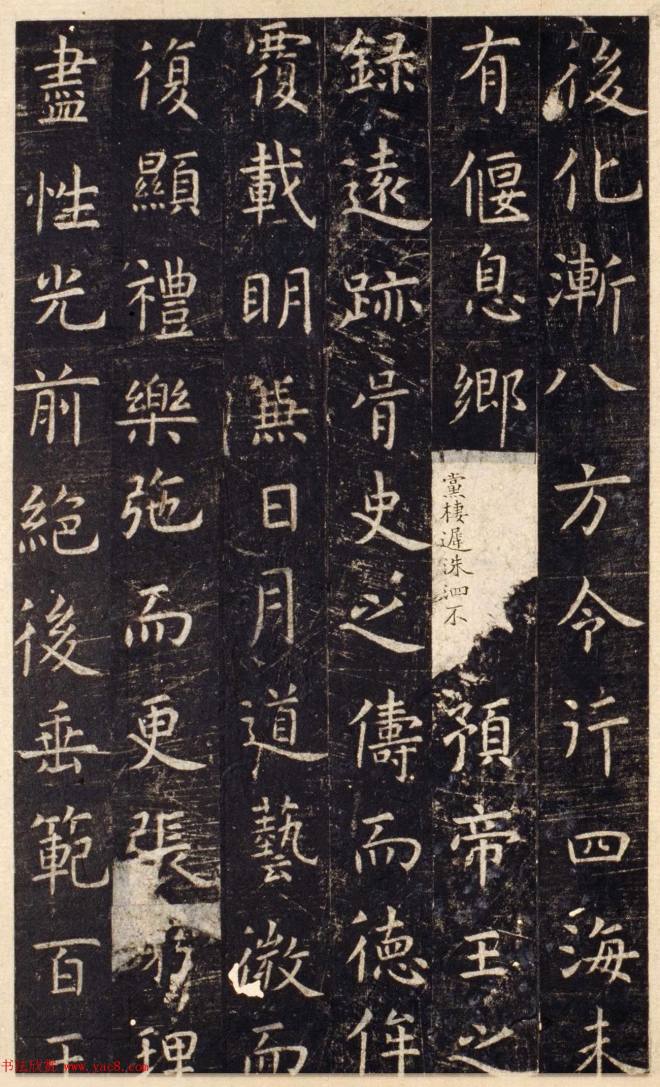 後化漸八方令行四海未
有偃息鄉
黨棲遲洙泗不
預帝王之
録遠跡胥史之儔而德侔
覆載明兼日月道藝微而
復顯禮樂弛而更張窮理
盡性光前絶後垂範百王
书法欣赏 www.yac8.com